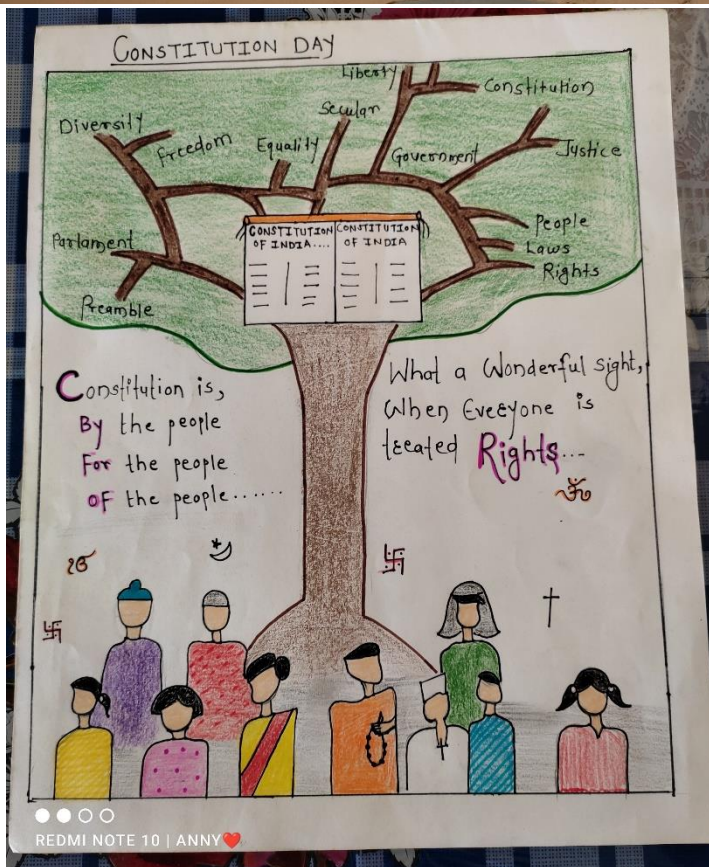 CONSTITUTION DAY
Liberty
Constitution
Secular
Diversity
Freedom
Equality
Government
Justice
Parlament
People
Laws
Rights
Preamble
CONSTITUTION OF INDIA....
CONSTITUTION OF INDIA
Constitution is,
By the people
For the people
OF the people......
What a Wonderful sight,
When Everyone is
treated Rights....
ॐ
ੴ
REDMI NOTE 10 | ANNY❤️